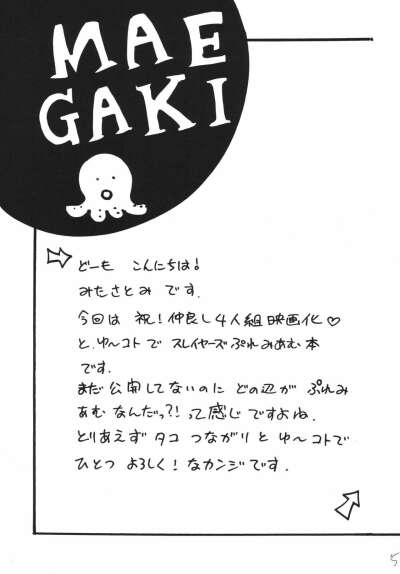 MAE
GAKI
どーも こんにちは!
みたさとみ です.
今回は 祝!仲良し4人組映画化♡
と.ゆ〜コトで スレイヤーズぷれみあむ本
です.
まだ公開してないのに どの辺が ぷれみ
あむ なんだっ?!って感じですよね.
とりあえず タコ つながり と ゆ〜コトで
ひとつ よろしく!なカンジです.
5